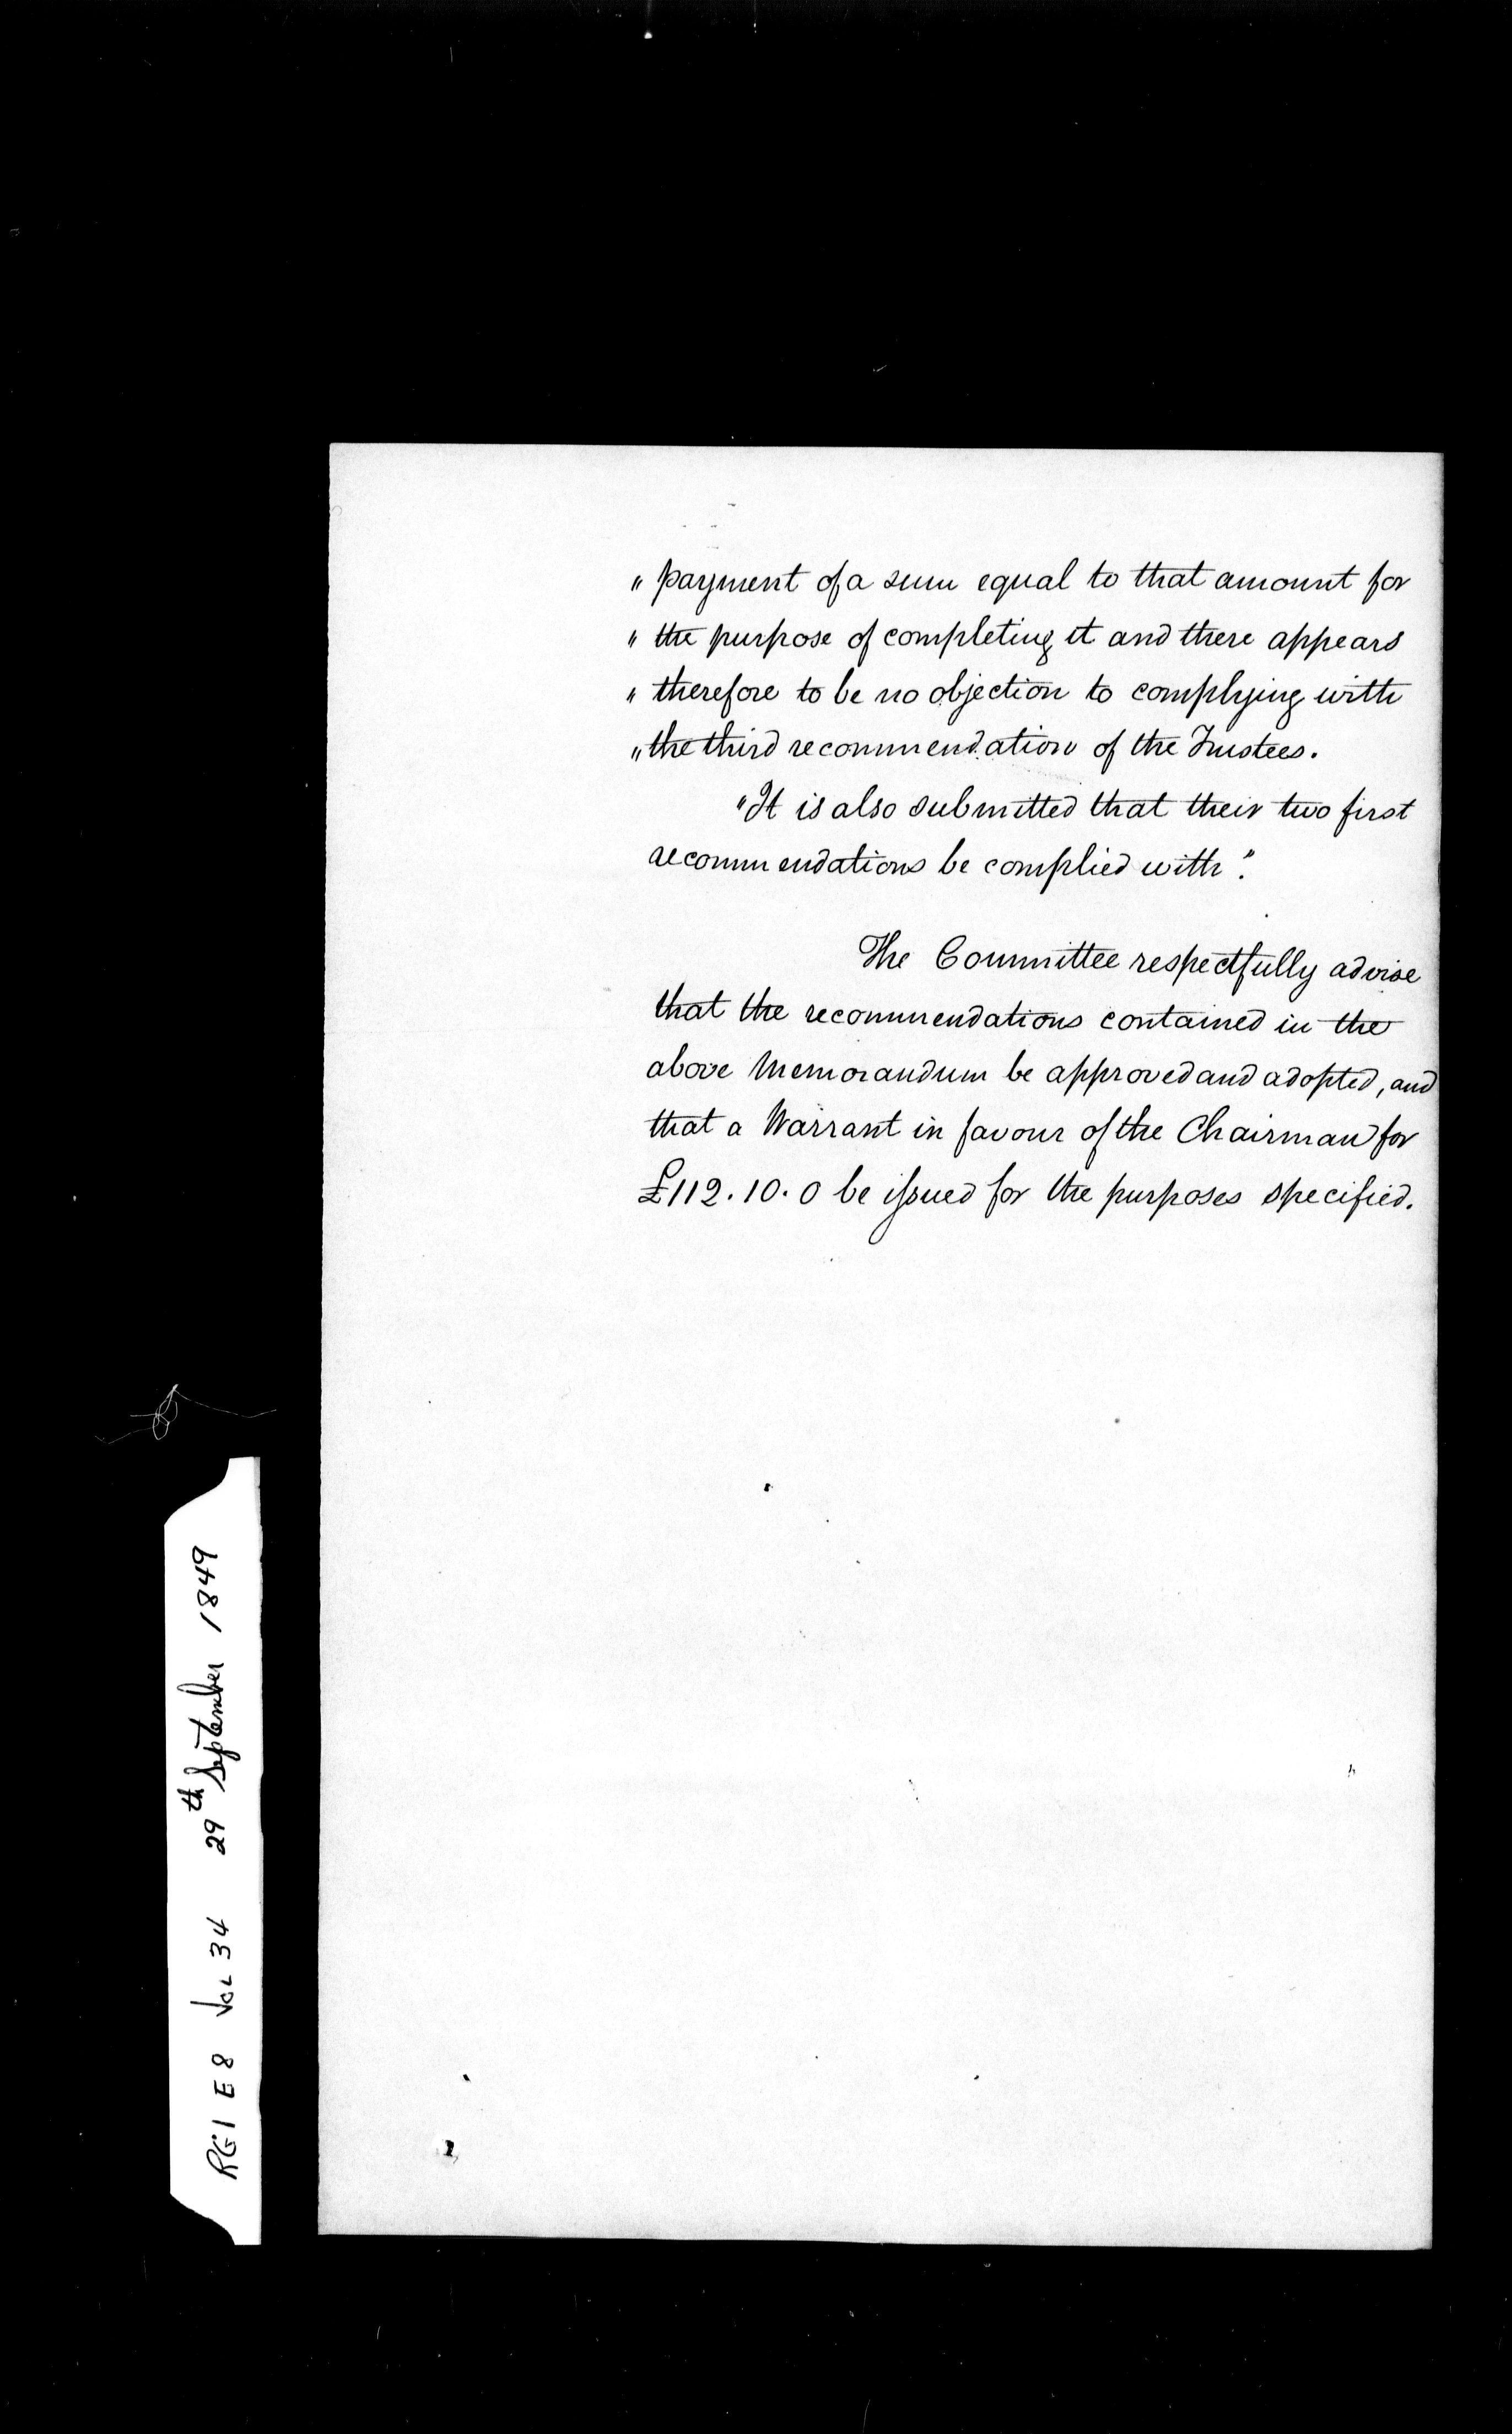 " payment of a sum equal to that amount for
" the purpose of completing it and there appears
" therefore to be no objection to complying with
" the third recommendation of the Trustees.
"It is also submitted that their two first
recommendations be complied with".
The Committee respectfully advise
that the recommendations contained in the
above Memorandum be approved and adopted, and
that a Warrant in favour of the Chairman for
£112.10.0 be issued for the purposes specified.
RG1 E8 Vol 34 29th September 1849